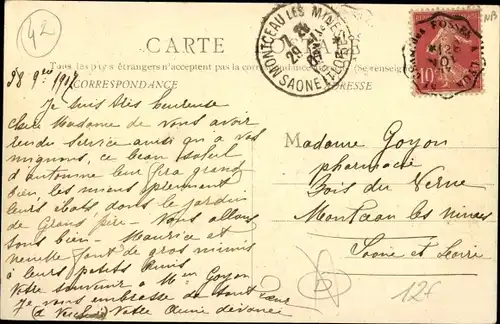 42
NB
CARTE
Tous les pays étrangers n'acceptent pas la correspondance
(Se renseigner
CORRESPONDANCE
MONTCEAU LES MINES
7 25
29
SAONE ET LOIRE
POSTES
10
28 9bre 1907
Je suis très heureuse
chère Madame de vous avoir
rendu service ainsi qu'à vos
mignons, ce beau soleil
d'automne leur fera grand
bien, les miens prennent
leurs ébats dans le jardin
de Grand'père - Vous allons
tous bien - Maurice et
font de gros mimis
à leurs petits amis
Votre souvenir à Mr Goyon
Je vous embrasse de tout cœur
Votre Amie dévouée
Madame Goyon
pharmacie
Bois du Verne
Montceau les mines
Saone et Loire
12F